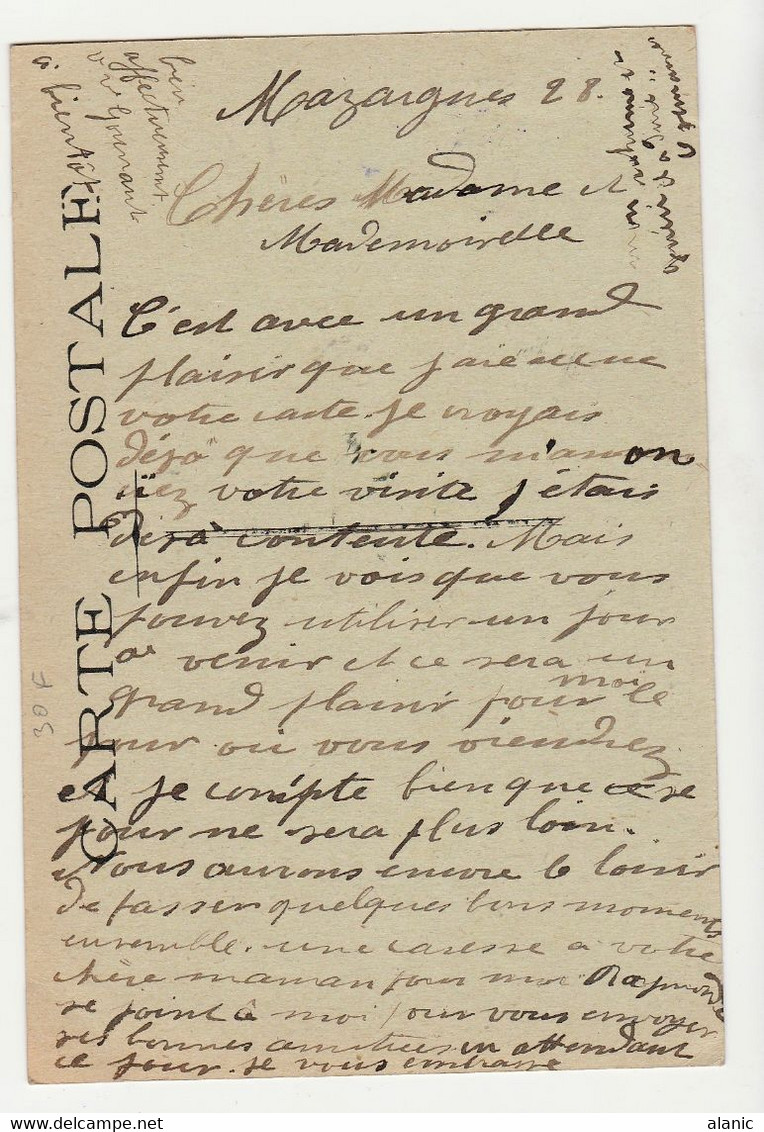 Mazargues 28.
Chères Madame et
Mademoiselle
C'est avec un grand
plaisir que j'ai
votre carte. je croyais
déjà que vous
votre visite j'étais
déjà contente. Mais
enfin je vois que vous
pouvez utiliser un jour
a venir et ce sera un
grand plaisir pour moi le
jour où vous viendrez
et je compte bien que ce
jour ne sera plus loin.
Nous aurons encore le loisir
de passer quelques bons moments
ensemble. une caresse a votre
chère maman pour moi Raymonde
se joint à moi pour vous envoyer
ses bonnes amitiées en attendant
ce jour. je vous embrasse
bien
affectueusement
a bientôt
CARTE POSTALE
30F
alanic